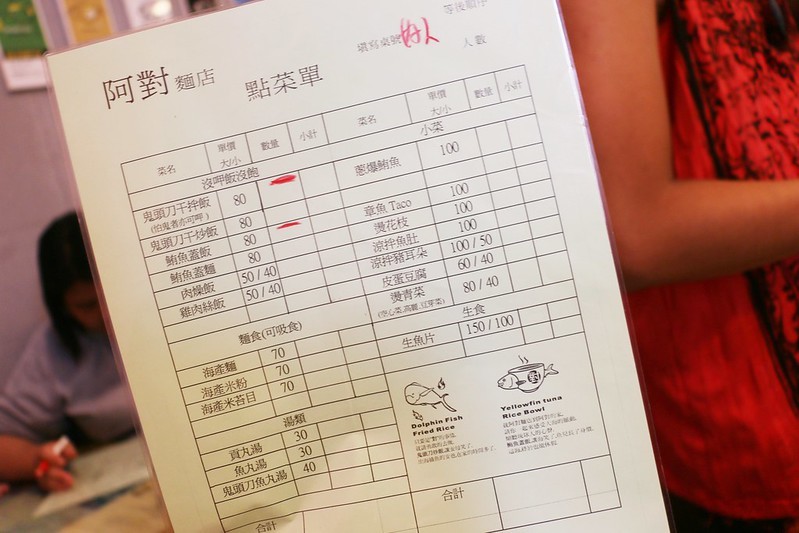 等後順序
填寫桌號 好人 人數
阿對 麵店 點菜單
菜名 單價 大/小 數量 小計
沒呷飯沒飽
鬼頭刀干拌飯 80
(怕鬼者亦可呷)
鬼頭刀干炒飯 80
鮪魚蓋飯 80
鮪魚蓋麵 80
肉燥飯 50 / 40
雞肉絲飯 50 / 40
麵食(可吸食)
海產麵 70
海產米粉 70
海產米苔目 70
湯類
貢丸湯 30
魚丸湯 30
鬼頭刀魚丸湯 40
合計
菜名 單價 大/小 數量 小計
小菜
蔥爆鮪魚 100
章魚 Taco 100
燙花枝 100
涼拌魚肚 100
涼拌豬耳朵 100 / 50
皮蛋豆腐 60 / 40
燙青菜 80 / 40
(空心菜,高麗,豆芽菜)
生食
生魚片 150 / 100
Dolphin Fish
Fried Rice
Yellowfin tuna
Rice Bowl
合計